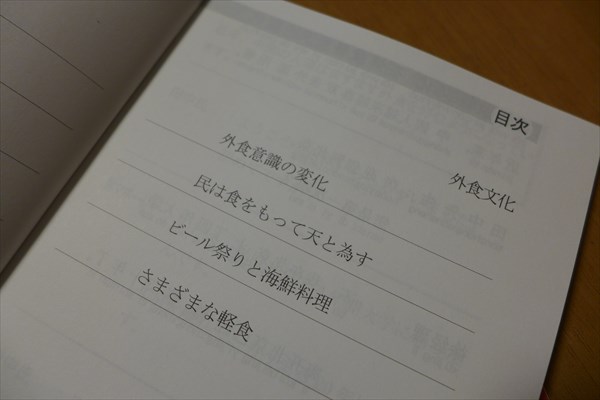 目次
外食文化
外食意識の変化
民は食をもって天と為す
ビール祭りと海鮮料理
さまざまな軽食